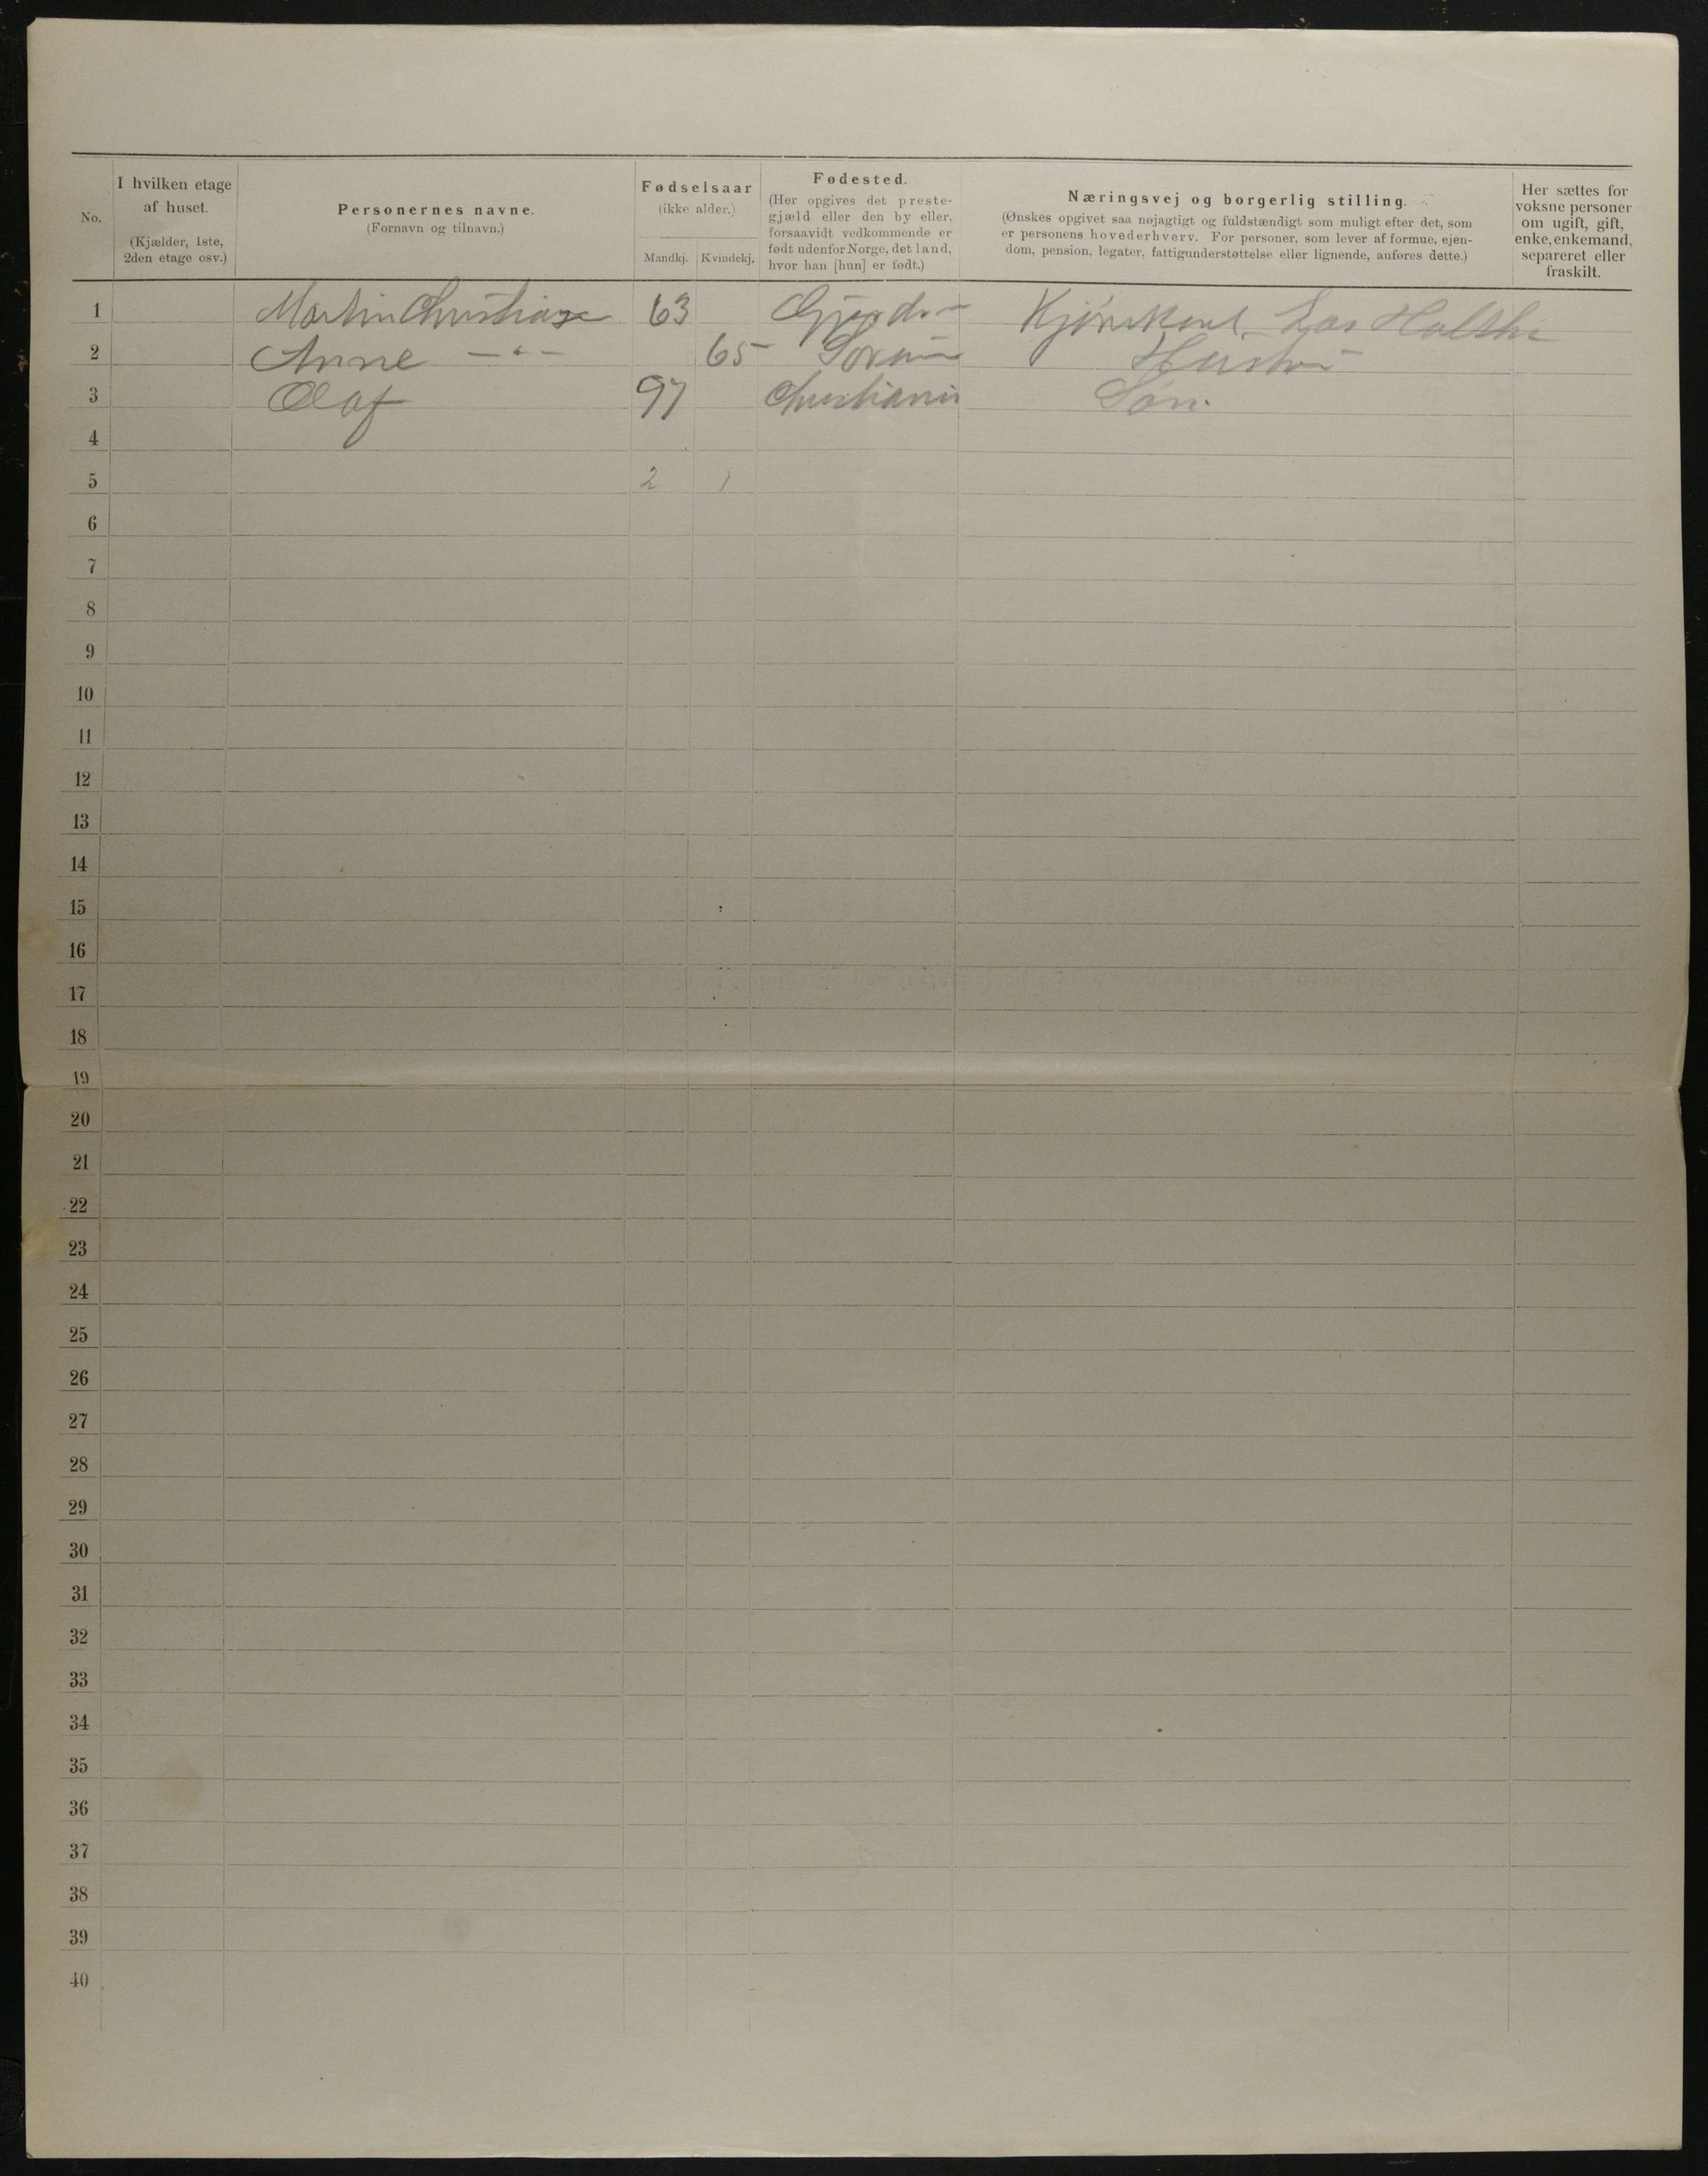 No.
I hvilken etage
af huset.
(Kjælder, 1ste,
2den etage osv.)
Personernes navne.
(Fornavn og tilnavn.)
Fødselsaar
(ikke alder.)
Mandkj. Kvindekj.
Fødested.
(Her opgives det preste-
gjæld eller den by eller,
forsaavidt vedkommende er
født udenfor Norge, det land,
hvor han [hun] er født.)
Næringsvej og borgerlig stilling.
(Ønskes opgivet saa nøjagtigt og fuldstændigt som muligt efter det, som
er personens hovederhverv. For personer, som lever af formue, ejen-
dom, pension, legater, fattigunderstøttelse eller lignende, anføres dette.)
Her sættes for
voksne personer
om ugift, gift,
enke, enkemand,
separeret eller
fraskilt.
1 Martin 63
2 Anne —"— 65 Hustru
3 Olaf 97 Christiania Søn.
4
5 2 1
6
7
8
9
10
11
12
13
14
15
16
17
18
19
20
21
22
23
24
25
26
27
28
29
30
31
32
33
34
35
36
37
38
39
40